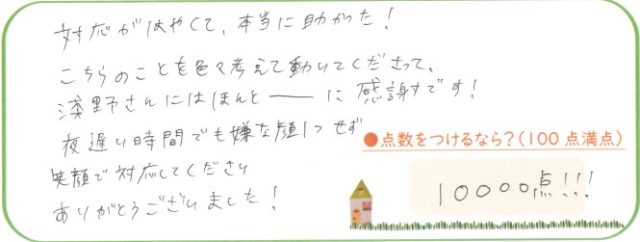 対応がはやくて、本当に助かった！
こちらのことを色々考えて動いてくださって、
淺野さんにはほんと――に感謝です！
夜遅い時間でも嫌な顔1つせず
笑顔で対応してくださり
ありがとうございました！
●点数をつけるなら？(100点満点)
10000点!!!